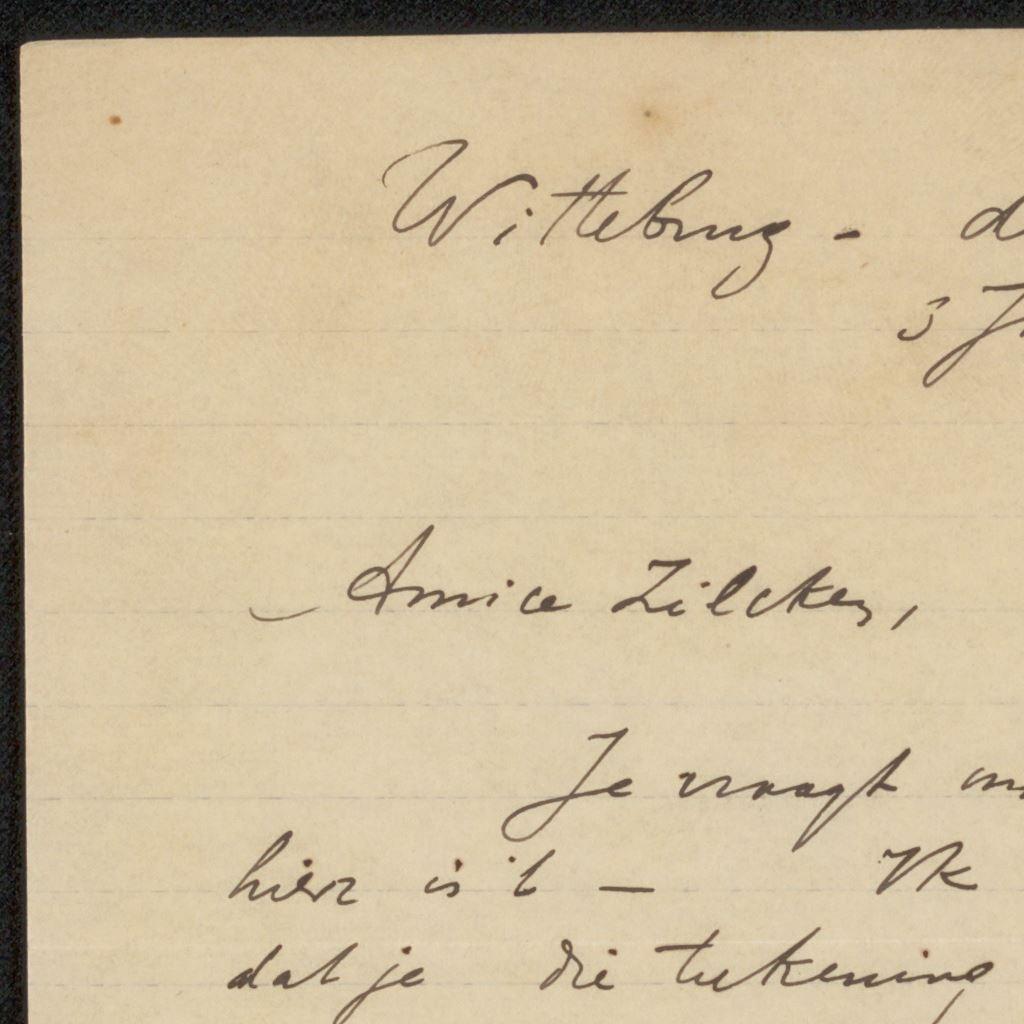 Wittebrug - d
3 J
Amice Zilcken,
Je vraagt
hier is 't —   Ik
dat je die tekening